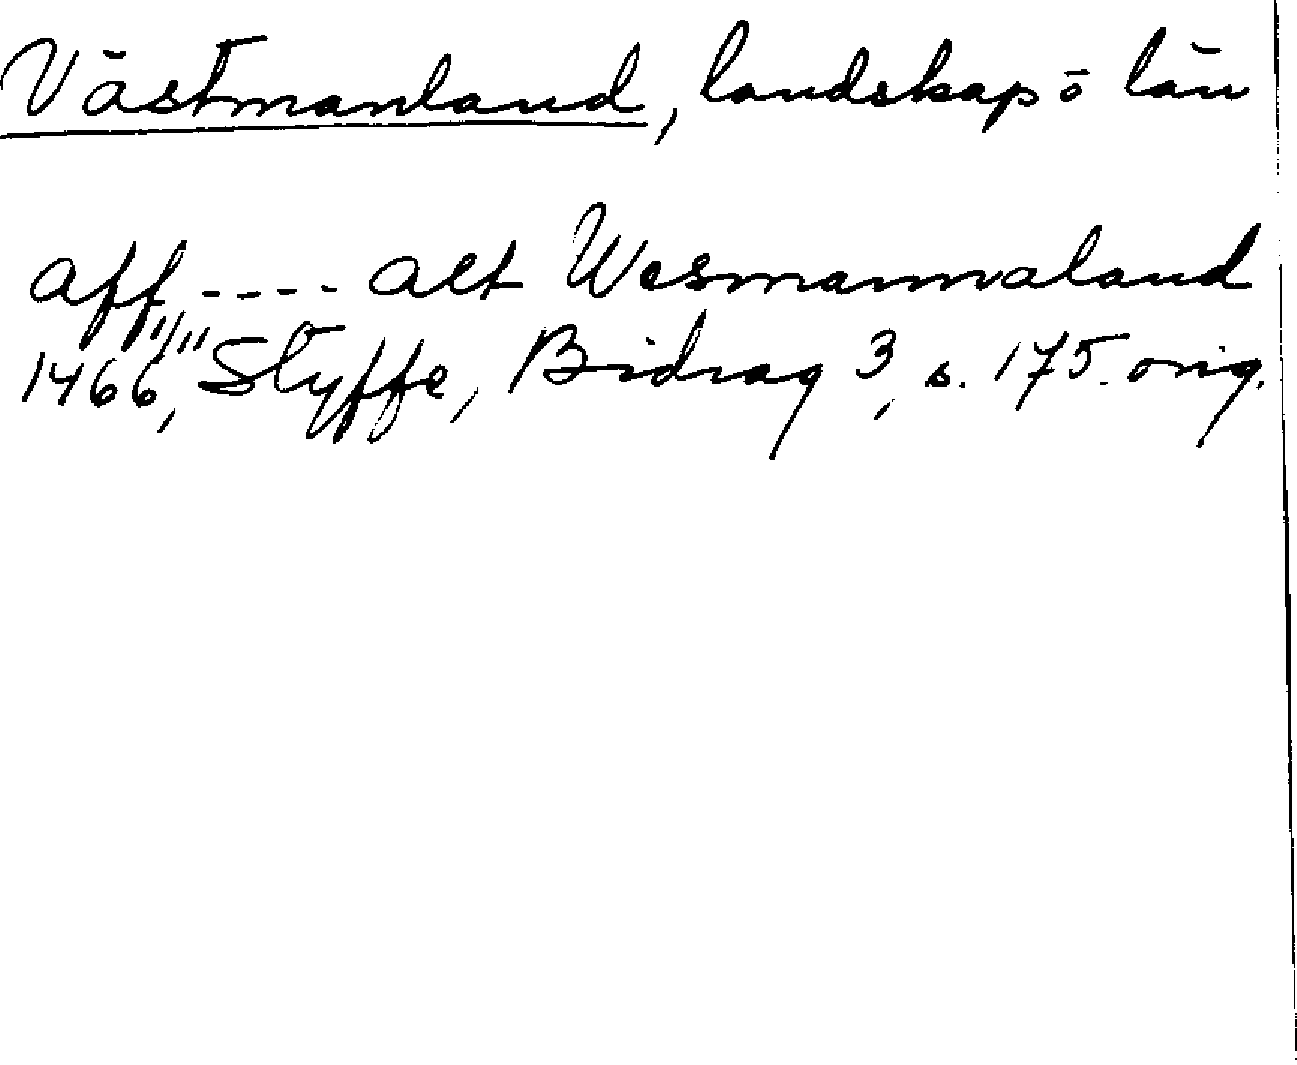 Västmanland, landskap o län
aff ---- alt Wesmannaland
1466 11/11, Styffe, Bidrag 3, s. 175. orig.